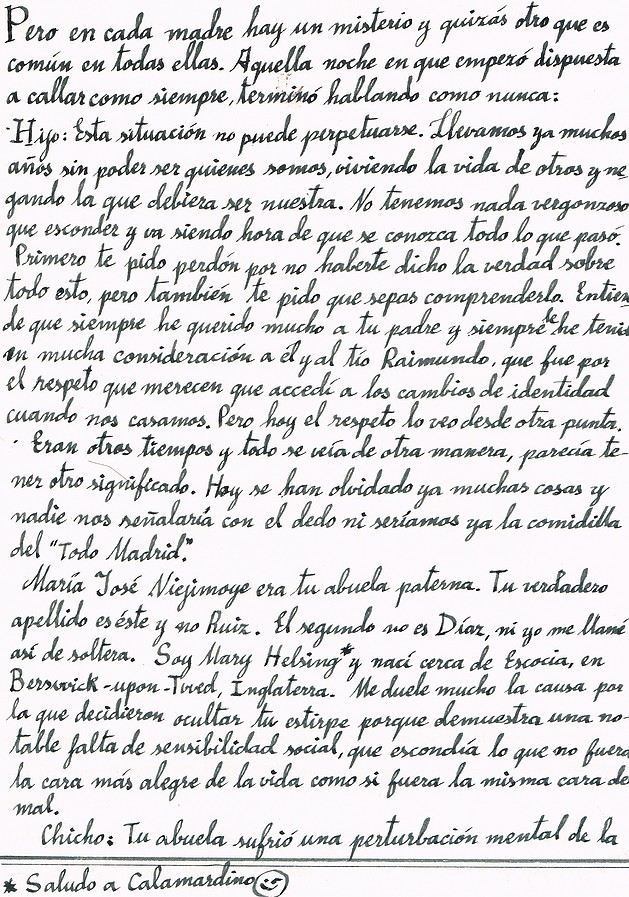 Pero en cada madre hay un misterio y quizás otro que es
común en todas ellas. Aquella noche en que empezó dispuesta
a callar como siempre, terminó hablando como nunca:
-Hijo: Esta situación no puede perpetuarse. Llevamos ya muchos
años sin poder ser quienes somos, viviendo la vida de otros y ne-
gando la que debiera ser nuestra. No tenemos nada vergonzoso
que esconder y va siendo hora de que se conozca todo lo que pasó.
Primero te pido perdón por no haberte dicho la verdad sobre
todo esto, pero también te pido que sepas comprenderlo. Entien-
de que siempre he querido mucho a tu padre y siempre le he tenido
en mucha consideración a él y al tío Raimundo, que fue por
el respeto que merecen que accedí a los cambios de identidad
cuando nos casamos. Pero hoy el respeto lo veo desde otra punta.
Eran otros tiempos y todo se veía de otra manera, parecía te-
ner otro significado. Hoy se han olvidado ya muchas cosas y
nadie nos señalaría con el dedo ni seríamos ya la comidilla
del "Todo Madrid."
María José Niejimoye era tu abuela paterna. Tu verdadero
apellido es éste y no Ruiz. El segundo no es Díaz, ni yo me llamé
así de soltera. Soy Mary Helsing* y nací cerca de Escocia, en
Berswick-upon-Tweed, Inglaterra. Me duele mucho la causa por
la que decidieron ocultar tu estirpe porque demuestra una no-
table falta de sensibilidad social, que escondía lo que no fuera
la cara más alegre de la vida como si fuera la misma cara del
mal.
Chicho: Tu abuela sufrió una perturbación mental de la
* Saludo a Calamardino